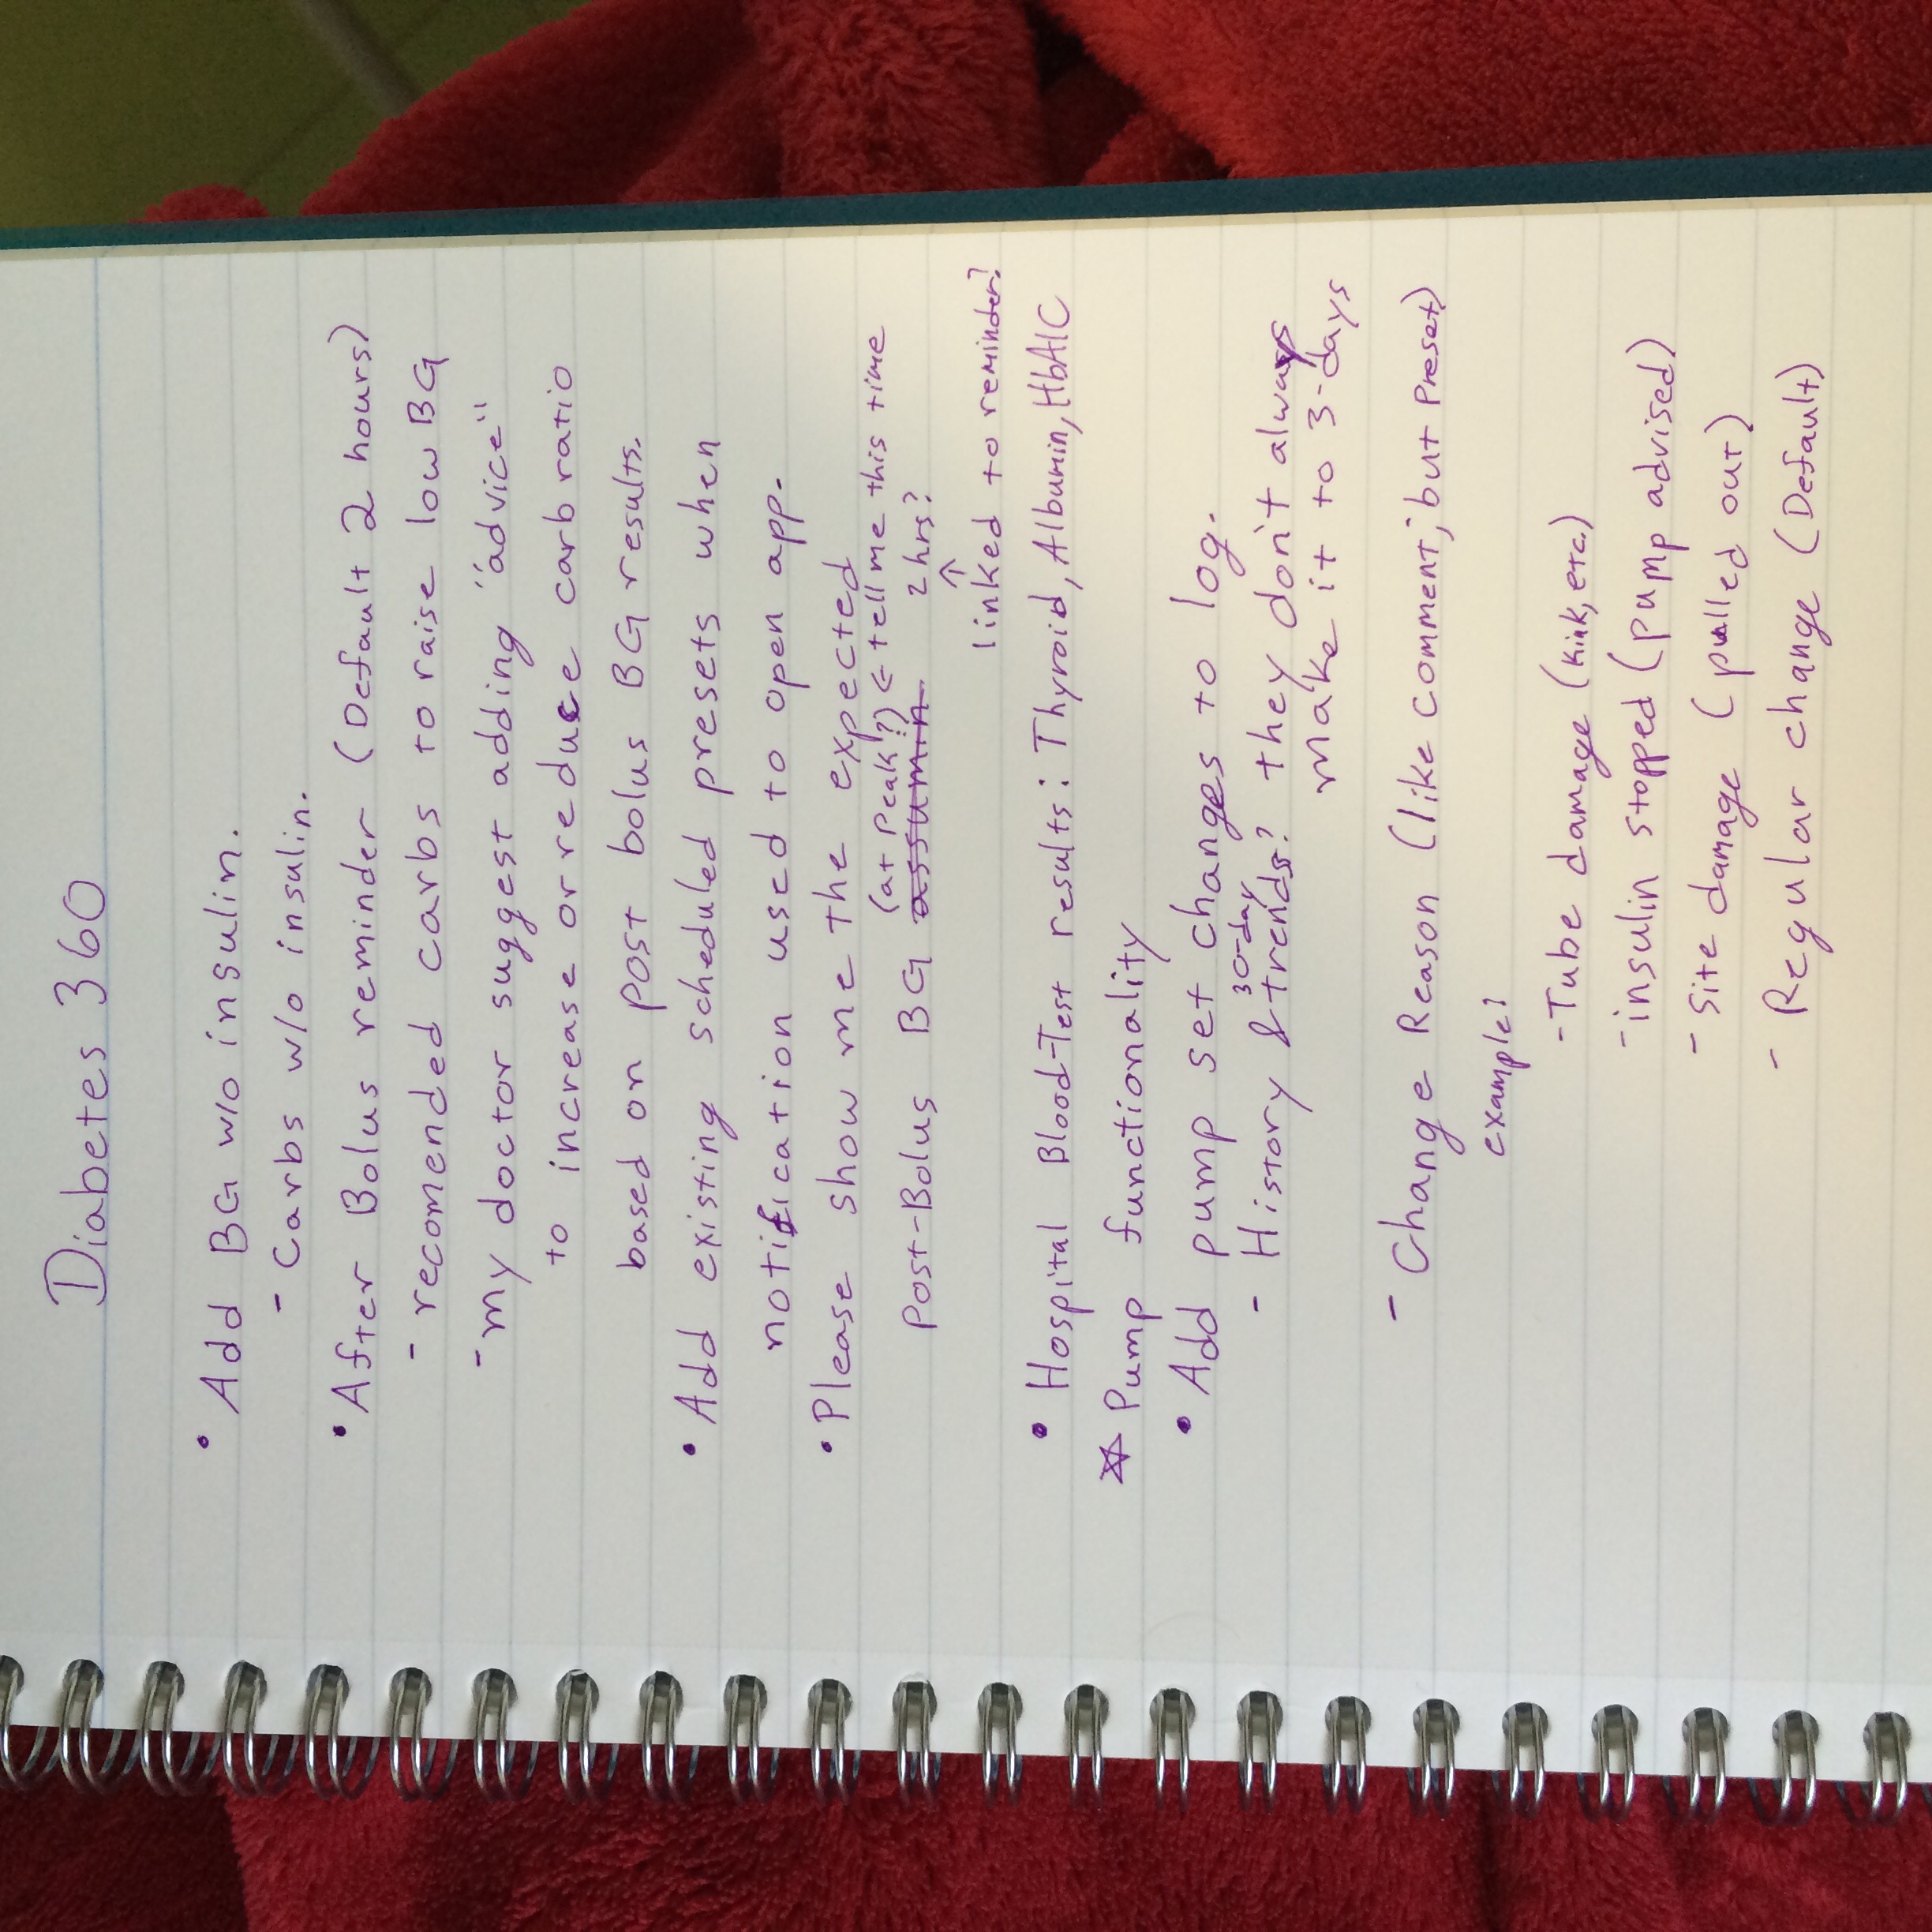 Diabetes 360
• Add BG w/o insulin.
- Carbs w/o insulin.
• After Bolus reminder (Default 2 hours)
- recomended carbs to raise low BG
- my doctor suggest adding "advice"
to increase or reduce carb ratio
based on post bolus BG results.
• Add existing scheduled presets when
notification used to open app.
• Please show me the expected
(at Peak!?) ← tell me this time
Post-Bolus BG assumin 2 hrs?
↑
linked to reminder?
• Hospital Blood-Test results: Thyroid, Albumin, HbA1C
☆ Pump functionality
• Add pump set changes to log.
30-day
- History & trends? they don't always
make it to 3-days
- Change Reason (like comment, but Preset)
example:
- Tube damage (Kink, etc.)
- insulin stopped (pump advised)
- Site damage (pulled out)
- Regular change (Default)